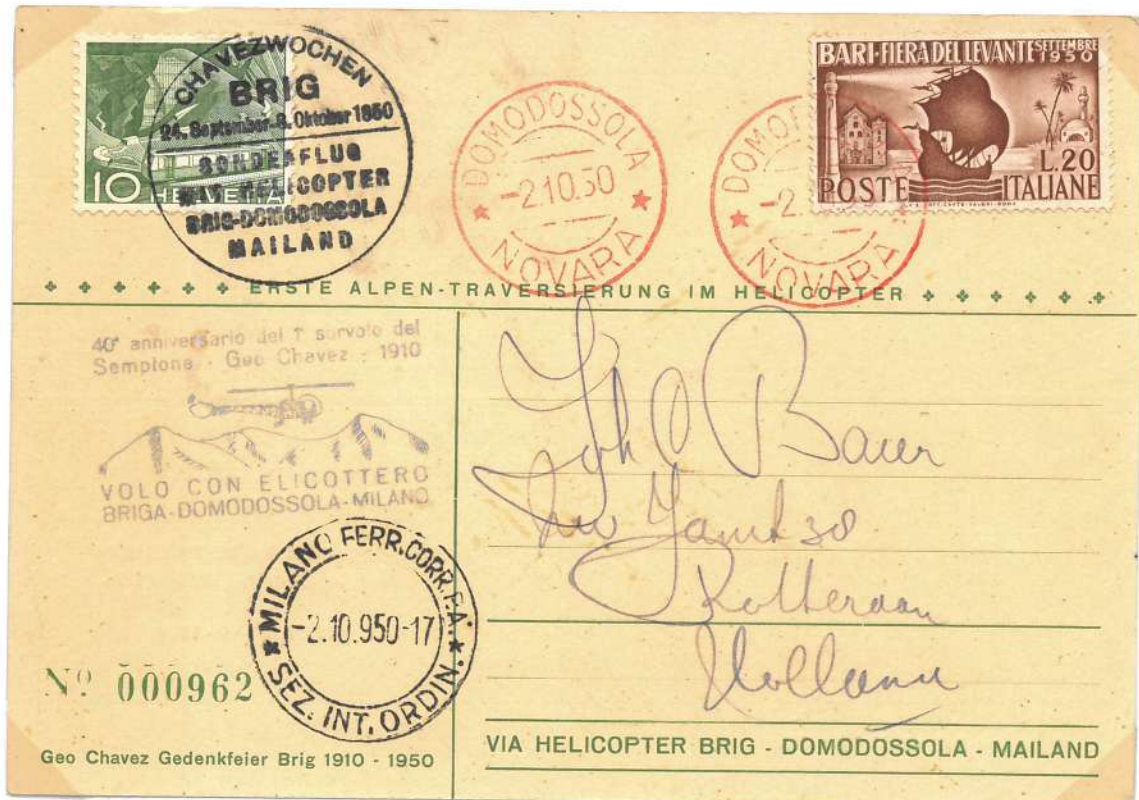 CHAVEZWOCHEN
BRIG
24. September-8. Oktober 1950
SONDERFLUG
MIT HELICOPTER
BRIG-DOMODOSSOLA
MAILAND
10 HELVETIA
DOMODOSSOLA
-2.10.50
NOVARA
DOMO
-2.
NOVARA
BARI-FIERA DEL LEVANTE SETTEMBRE
1950
L.20
POSTE ITALIANE
ERSTE ALPEN-TRAVERSIERUNG IM HELICOPTER
40° anniversario del 1° sorvolo del
Sempione - Geo Chavez : 1910
VOLO CON ELICOTTERO
BRIGA-DOMODOSSOLA-MILANO
MILANO FERR.CORR.P.A.
-2.10.950-17
SEZ. INT. ORDIN.
Nº 000962
Geo Chavez Gedenkfeier Brig 1910 - 1950
Bauer
38
Rotterdam
Holland
VIA HELICOPTER BRIG - DOMODOSSOLA - MAILAND